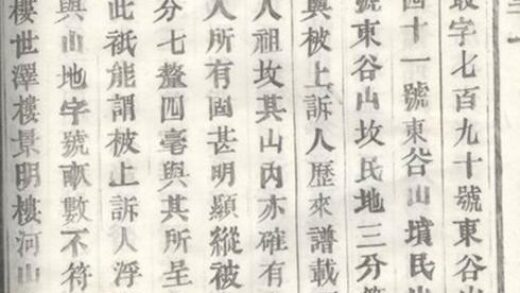 叢字七百九十號東谷山
四十一號東谷山墳民山
號東谷山坟民地三分
與被上訴人歷來譜載
人祖坟其山內亦確有
人所有固甚明顯縱被
分七釐四毫與其所呈
此祇能謂被上訴人浮
與山地字號畝數不符
樓世澤樓景明樓河山